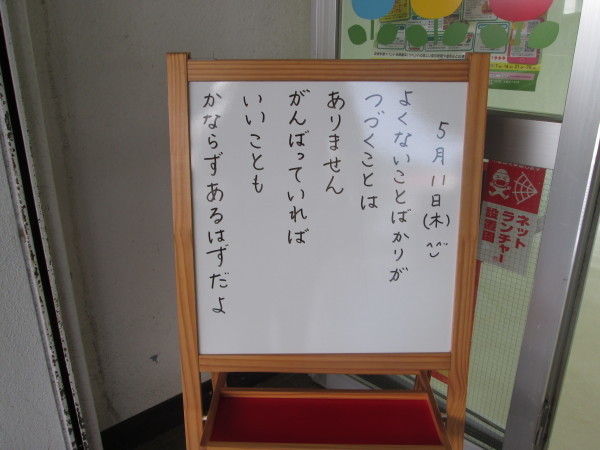 5月11日(木)
よくないことばかりが
つづくことは
ありません
がんばっていれば
いいことも
かならずあるはずだよ
ネット
ランチャー
設置園